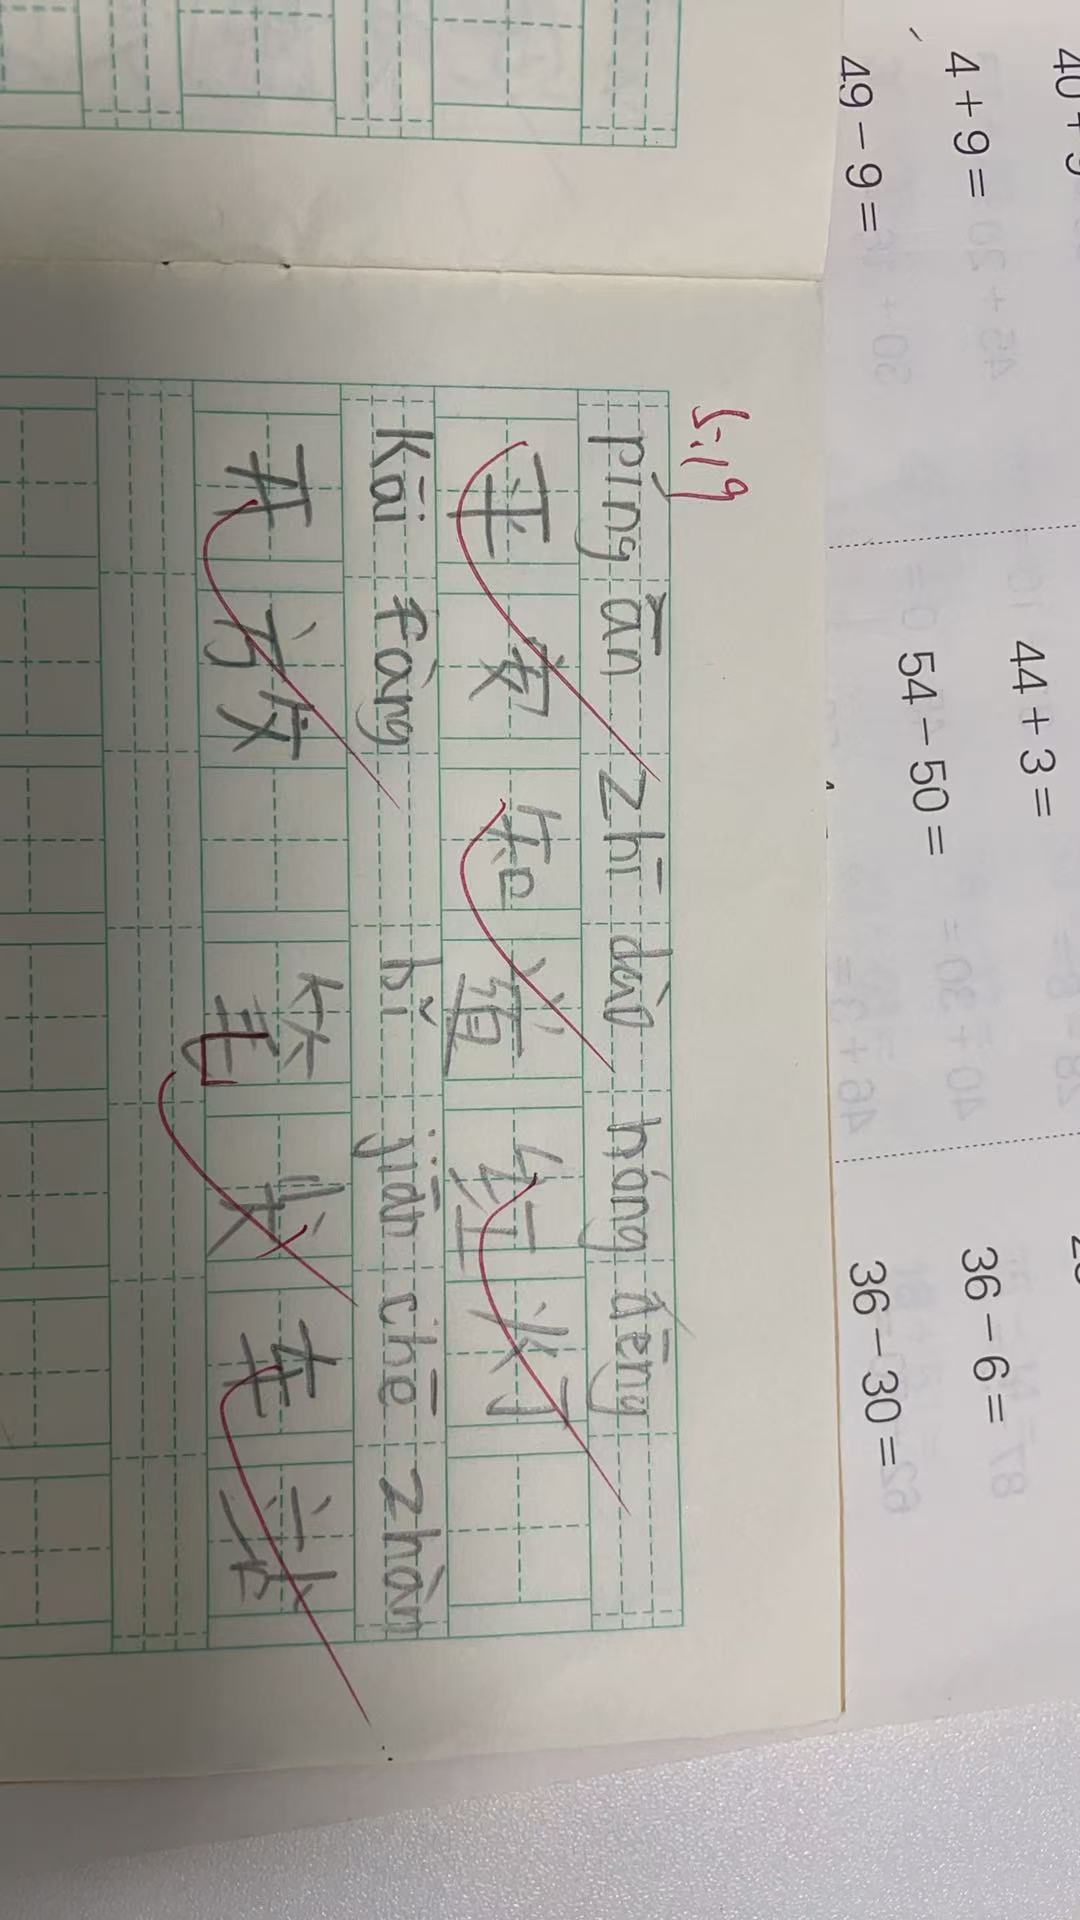 44+3=
4+9= 54-50= 36-6=
49-9= 36-30=
5.19
píng ān zhī dào hóng dēng
平安知道红灯
Kāi fàng bǐ jiān chē zhàn
开放 笔尖车站